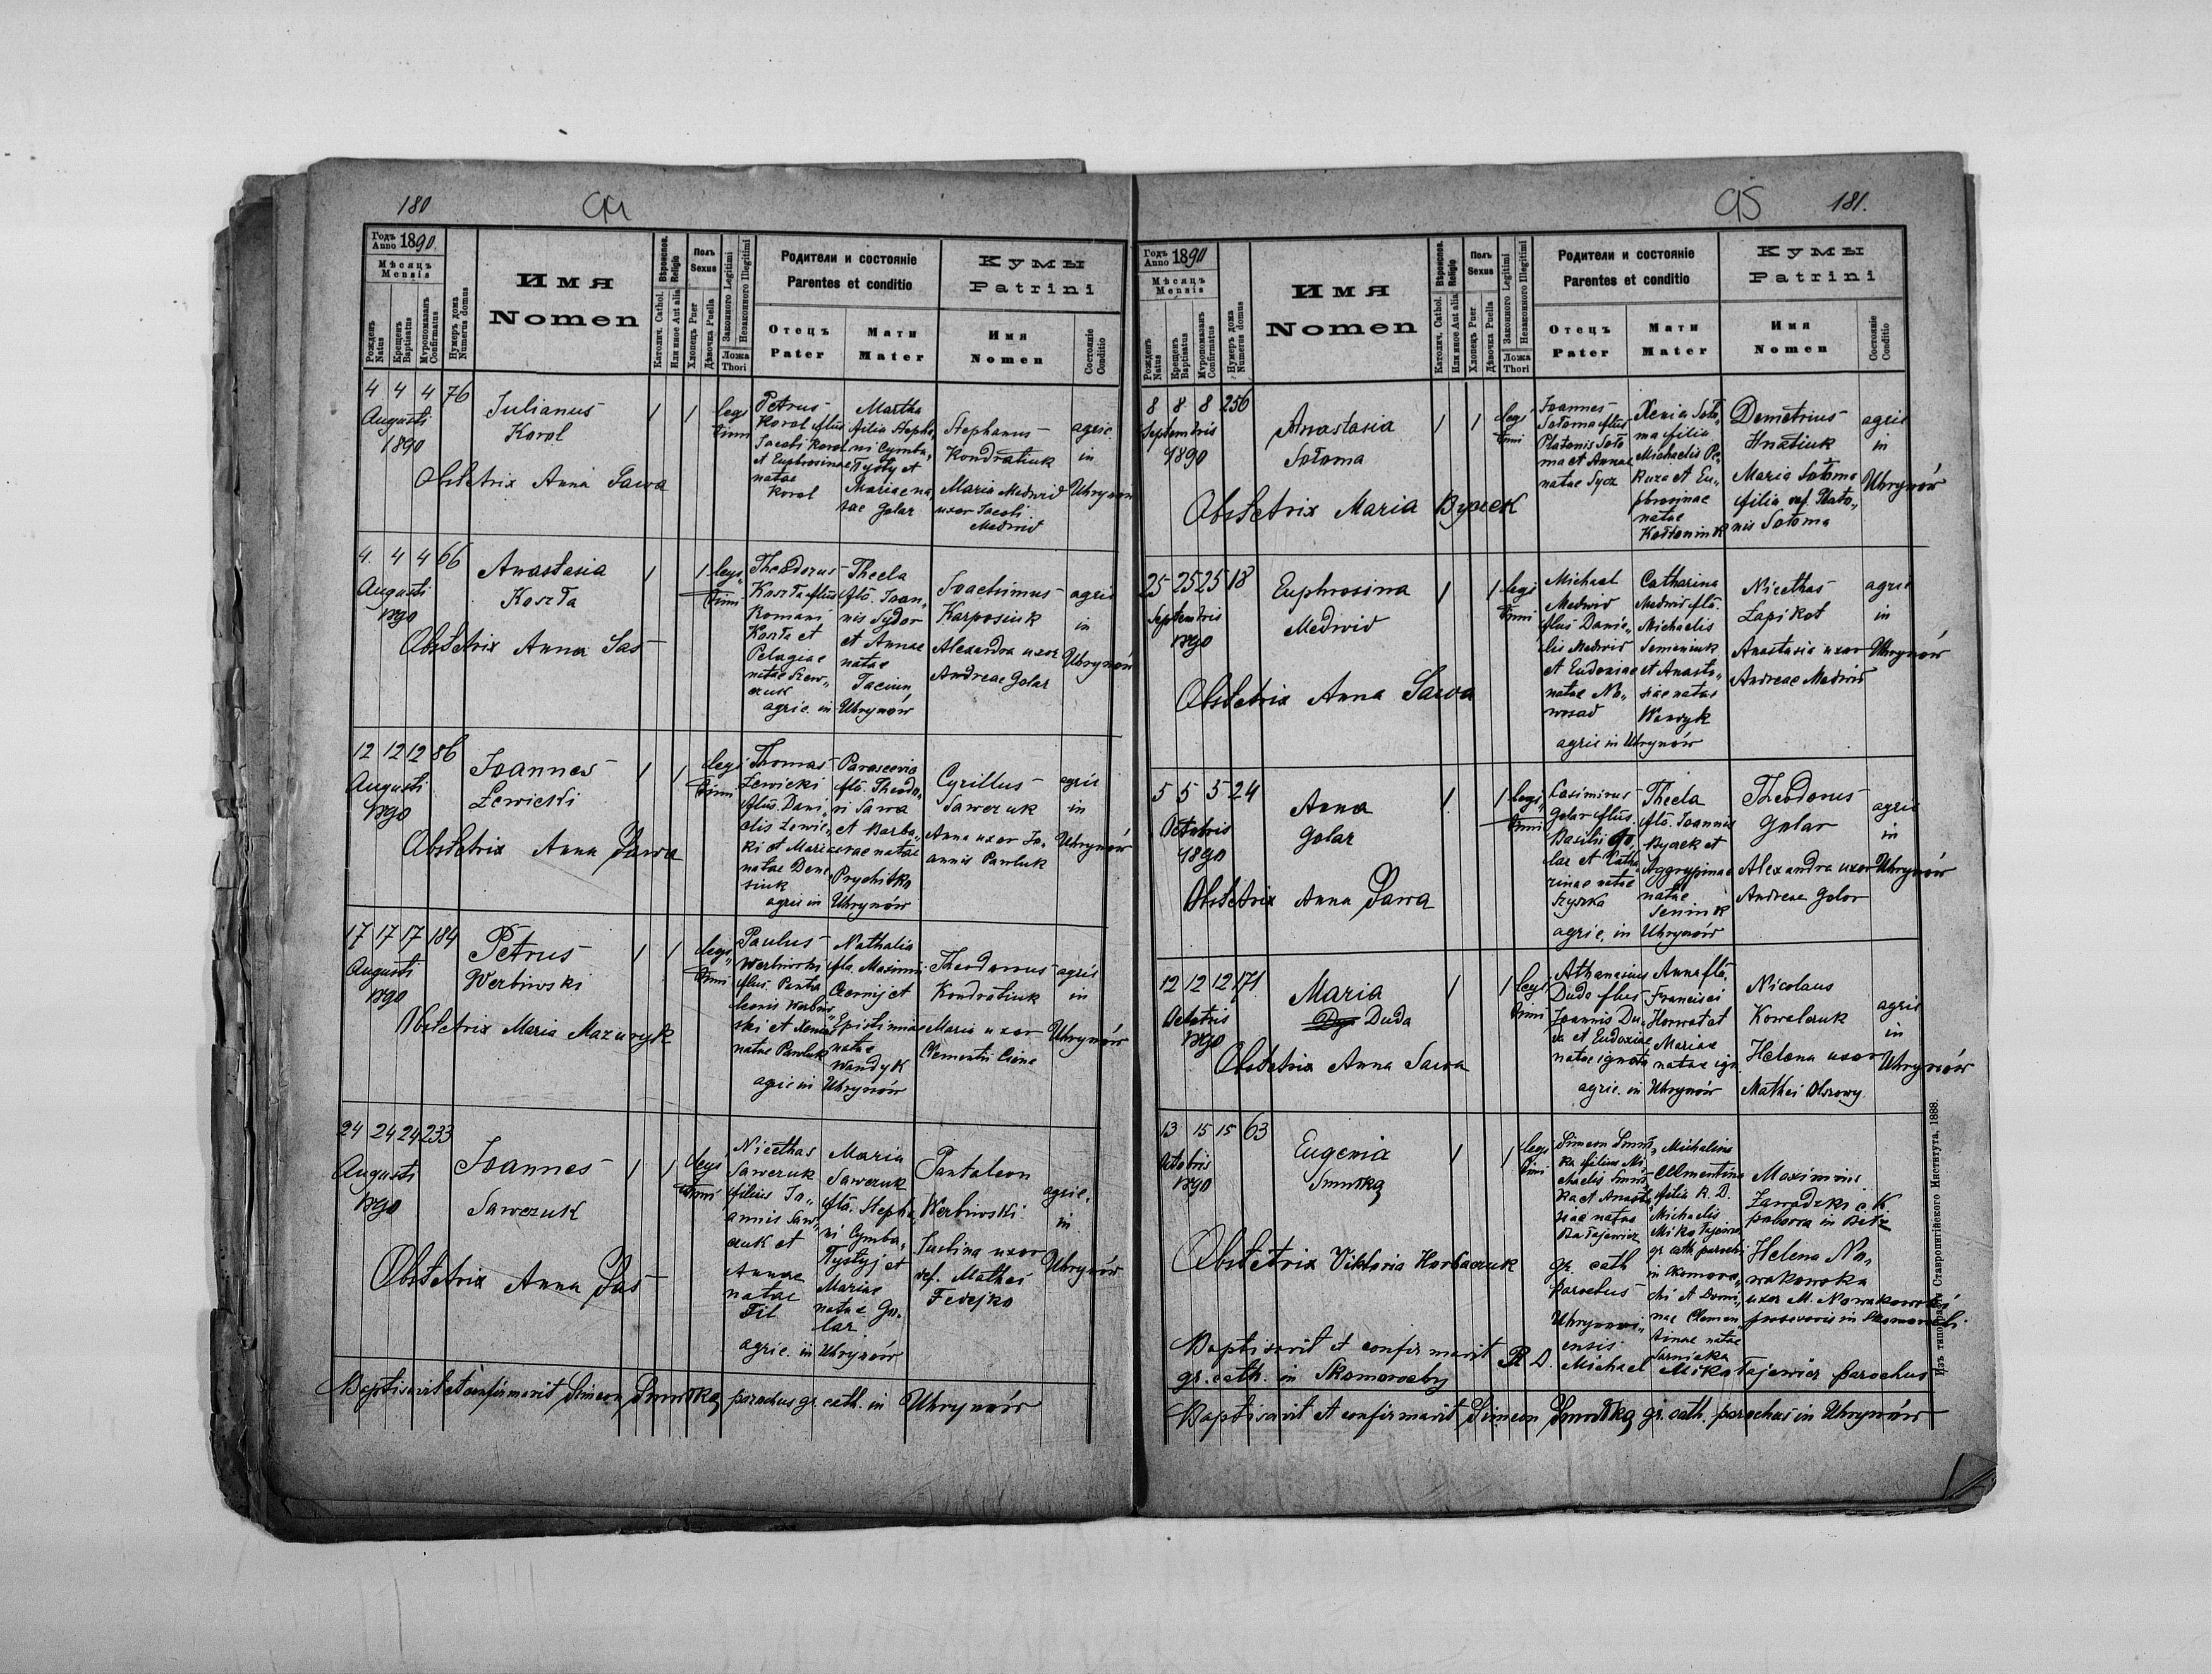 180
94
Годъ Anno 1890.
Мѣсяцъ Mensis
Рожденъ Natus
Крещенъ Baptisatus
Муропомазанъ Confirmatus
Нумеръ дома Numerus domus
Имя
Nomen
Вѣроиспов. Religio
Католич. Cathol.
Или иное Aut alia
Полъ Sexus
Хлопецъ Puer
Дѣвочка Puella
Законного Legitimi
Незаконного Illegitimi
Ложа Thori
Родители и состояніе
Parentes et conditio
Отецъ Pater
Мати Mater
Кумы
Patrini
Имя Nomen
Состояніе Conditio
4 4 4 76
Augusti
1890
Julianus
Korol
1 1
legi
timi
Petrus
Korol filius
Jacobi Korol
et Euphrosinae
natae
Korol
Martha
filia Stepha„
ni Cymba„
Tysty et
Mariae na
tae Golar
Stephanus
Kondratiuk
Maria Medwid
uxor Jacobi
Medwid
agric.
in
Uhrynów
Obstetrix Anna Sawa
4 4 4 66
Augusti
1890
Anastasia
Koszła
1 1
legi„
timi
Theodorus
Koszła filius
Romani
Koszła et
Pelagiae
natae Szew„
czuk
Thecla
flā. Joan„
nis Sydor
et Annae
natae
Taciun
agric. in Uhrynów
Joachimus
Karposiuk
Alexandra uxor
Andreae Golar
agric
in
Uhrynów
Obstetrix Anna Sas
12 12 12 86
Augusti
1890
Joannes
Lewicki
1 1
legi
timi
Thomas
Lewicki
flus. Dani„
elis Lewic„
ki et Mariae
natae Deni
siuk
Parascevia
flā. Theodo„
ri Sawa
et Barba„
rae natae
Prychitko
agric in Uhrynów
Cyrillus
Sawczuk
Anna uxor Jo„
annis Pawluk
agric
in
Uhrynów
Obstetrix Anna Sawa
17 17 17 184
Augusti
1890
Petrus
Werbiwski
1 1
legi„
timi
Paulus
Werbiwski
flus. Panta
leonis Werbiw„
ski et Xeniae
natae Pawluk
Nathalia
fla. Maximi
Czernij et
Epistimiae
natae
Wandyk
agric in Uhrynów
Theodorus
Kondratiuk
Maria uxor
Clementii
agric
in
Uhrynów
Obstetrix Maria Mazuryk
24 24 24 233
Augusti
1890
Joannes
Sawczuk
1 1
legi
timi
Nicethas
Sawczuk
filius Jo„
annis Saw„
czuk et
Annae
natae
Fil
Maria
Sawczuk
flā. Stepha„
ni Cymba„
Tystyj et
Mariae
natae Go„
lar
agric. in Uhrynów
Pantaleon
Werbiwski
Justina uxor
def. Mathei
Fedejko
agric.
in
Uhrynów
Obstetrix Anna Sas
Baptisavit et confirmavit Simeon Smułka parochus gr. cath. in Uhrynów
95
181.
Годъ Anno 1890
Мѣсяцъ Mensis
Рожденъ Natus
Крещенъ Baptisatus
Муропомазанъ Confirmatus
Нумеръ дома Numerus domus
Имя
Nomen
Вѣроиспов. Religio
Католич. Cathol.
Или иное Aut alia
Полъ Sexus
Хлопецъ Puer
Дѣвочка Puella
Законного Legitimi
Незаконного Illegitimi
Ложа Thori
Родители и состояніе
Parentes et conditio
Отецъ Pater
Мати Mater
Кумы
Patrini
Имя Nomen
Состояніе Conditio
8 8 8 256
Septembris
1890
Anastasia
Sołoma
1 1
legi
timi
Joannes
Sołoma filius
Platonis Soło
ma et Annae
natae Sycz
Xenia Soło„
ma filia
Michaelis Pe„
Ruza et Eu„
phrosinae
natae
Demetrius
Hnatiuk
Maria Sołoma
filia def. Plato„
nis Sołoma
agric
in
Uhrynów
Obstetrix Maria Bycek
25 25 25 18
Septembris
1890
Euphrosina
Medwid
1 1
legi
timi
Michael
Medwid
flius Danie„
lis Medwid
et Eudoxiae
natae No„
wosad
Catharina
Medwid flā.
Michaelis
Semeniuk
et Anasta„
siae natae
Wandyk
agric in Uhrynów
Nicethas
Łapikot
Anastasia uxor
Andreae Medwid
agric
in
Uhrynów
Obstetrix Anna Sawa
5 5 5 24
Octobris
1890
Anna
Golar
1 1
legi„
timi
Casimirus
Golar flius.
Basilii Go„
lar et Catha
rinae natae
Szyszka
Thecla
flā. Joannis
Bycek et
Aggrypinae
natae
Seniuk
agric. in Uhrynów
Theodorus
Golar
Alexandra uxor
Andreae Golar
agric
in
Uhrynów
Obstetrix Anna Sawa
12 12 12 171
Octobris
1890
Maria
Duda
1 1
legi
timi
Athanasius
Duda flus
Joannis Du„
da et Eudoxiae
natae ignota
Anna flā.
Francisci
Horwat et
Mariae
natae ign
agric. in Uhrynów
Nicolaus
Kowalczuk
Helena uxor
Mathei Olszowy
agric
in
Uhrynów
Obstetrix Anna Sawa
13 15 15 63
Octobris
1890
Eugenia
Smułka
1 1
legi
timi
Simeon Smuł„
ka filius Mi„
chaelis Smuł„
ka et Anasta„
siae natae
Bałajewicz
gr. cath
parochus
Uhrynovi„
ensis
Michalina
Clementina
filia R. D.
Michaelis
Mikołajewicz
gr. cath parochi
in Skomoro„
chi et Domi„
nae Clemen„
tinae natae
Sarnicka
Maximus
Zawadzki c. K
in Bełz
Helena No„
wakowska
uxor M. Nowakowski
in Skomorochi
Obstetrix Viktoria Horbaczuk
Baptisavit et confirmavit R. D. Michael Mikołajewicz parochus
gr. cath. in Skomorochy
Baptisavit et confirmavit Simeon Smułka gr. cath. parochus in Uhrynów
Изъ типографіи Ставропигійского Института, 1888.